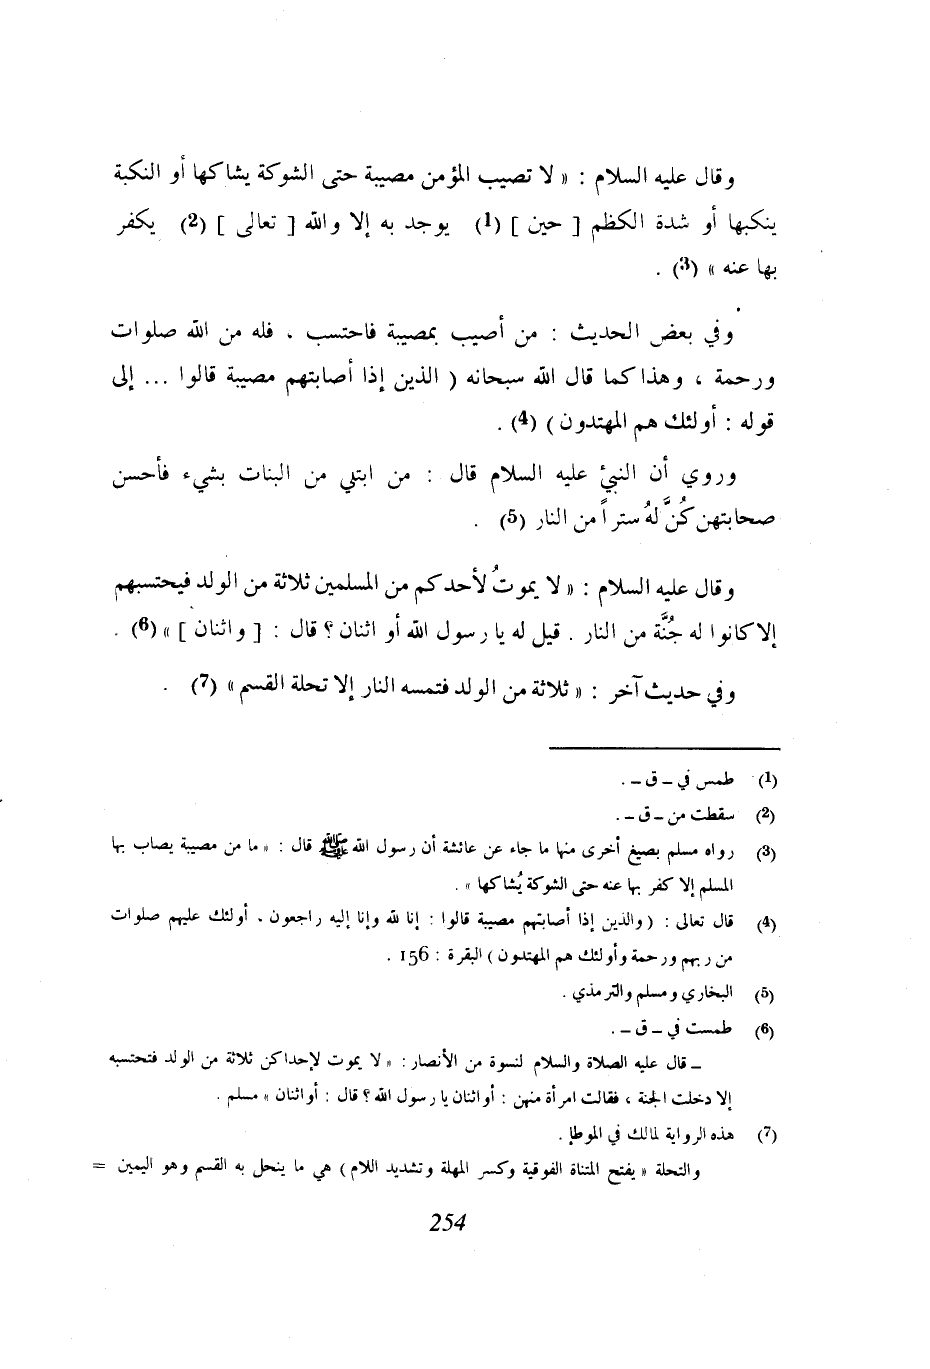 وقال عليه السلام : « لا تصيب المؤمن مصيبة حتى الشوكة يشاكها أو النكبة
ينكبها أو شدة الكظم [ حين ] (1) يوجد به إلا والله [ تعالى ] (2) يكفر
بها عنه » (3) .
وفي بعض الحديث : من أصيب بمصيبة فاحتسب ، فله من الله صلوات
ورحمة ، وهذا كما قال الله سبحانه ( الذين إذا أصابتهم مصيبة قالوا ... إلى
قوله : أولئك هم المهتدون ) (4) .
وروي أن النبيَّ عليه السلام قال : من ابتلي من البنات بشيء فأحسن
صحابتهن كُنَّ لهُ ستراً من النار (5) .
وقال عليه السلام : « لا يموتُ لأحدكم من المسلمين ثلاثة من الولد فيحتسبهم
إلا كانوا له جُنَّة من النار . قيل له يا رسول الله أو اثنان ؟ قال : [ واثنان ] » (6) .
وفي حديث آخر : « ثلاثة من الولد فتمسه النار إلا تحلة القسم » (7) .
(1) طمس في ـ ق ـ .
(2) سقطت من ـ ق ـ .
(3) رواه مسلم بصيغ أخرى منها ما جاء عن عائشة أن رسول الله ﷺ قال : « ما من مصيبة يصاب بها
المسلم إلا كفر بها عنه حتى الشوكة يُشاكها » .
(4) قال تعالى : ( والذين إذا أصابتهم مصيبة قالوا : إنا لله وإنا إليه راجعون ، أولئك عليهم صلوات
من ربهم ورحمة وأولئك هم المهتدون ) البقرة : 156 .
(5) البخاري ومسلم والترمذي .
(6) طمست في ـ ق ـ .
ـ قال عليه الصلاة والسلام لنسوة من الأنصار : « لا يموت لإحداكن ثلاثة من الولد فتحتسبه
إلا دخلت الجنة ، فقالت امرأة منهن : أو اثنان يا رسول الله ؟ قال : أو اثنان » مسلم .
(7) هذه الرواية لمالك في الموطإ .
والتحلة « بفتح المتناة الفوقية وكسر المهلة وتشديد اللام ) هي ما ينحل به القسم وهو اليمين =
254